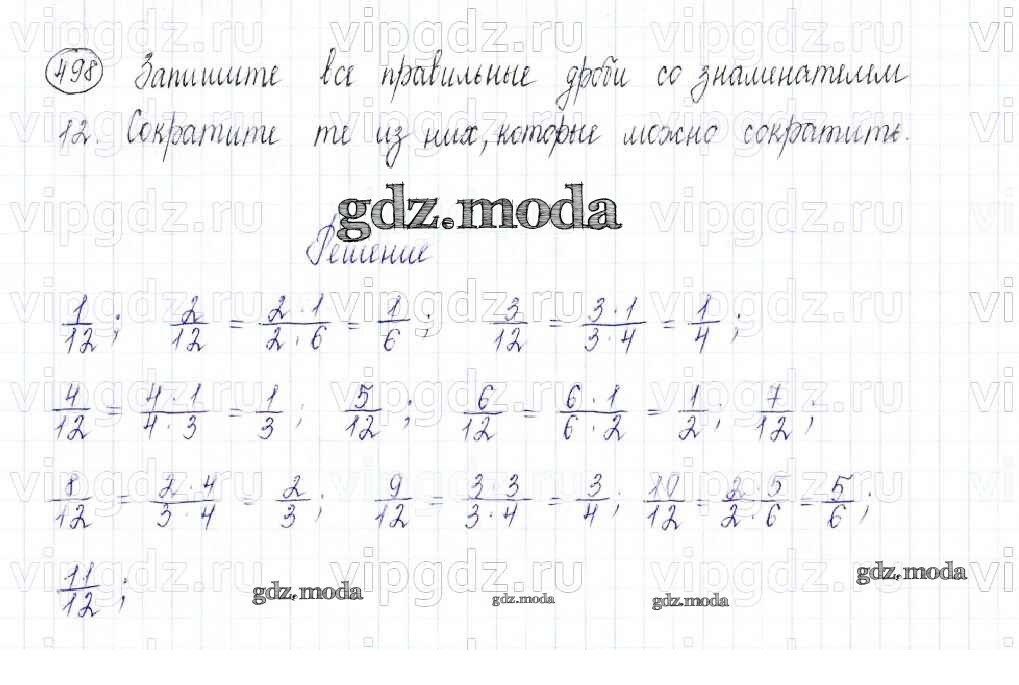 498 Запишите все правильные дроби со знаменателем
12. Сократите те из них, которые можно сократить.
gdz.moda
Решение
1/12; 2/12 = 2·1/2·6 = 1/6; 3/12 = 3·1/3·4 = 1/4;
4/12 = 4·1/4·3 = 1/3; 5/12; 6/12 = 6·1/6·2 = 1/2; 7/12;
8/12 = 2·4/3·4 = 2/3; 9/12 = 3·3/3·4 = 3/4; 10/12 = 2·5/2·6 = 5/6;
11/12;
gdz.moda gdz.moda gdz.moda gdz.moda
vipgdz.ru